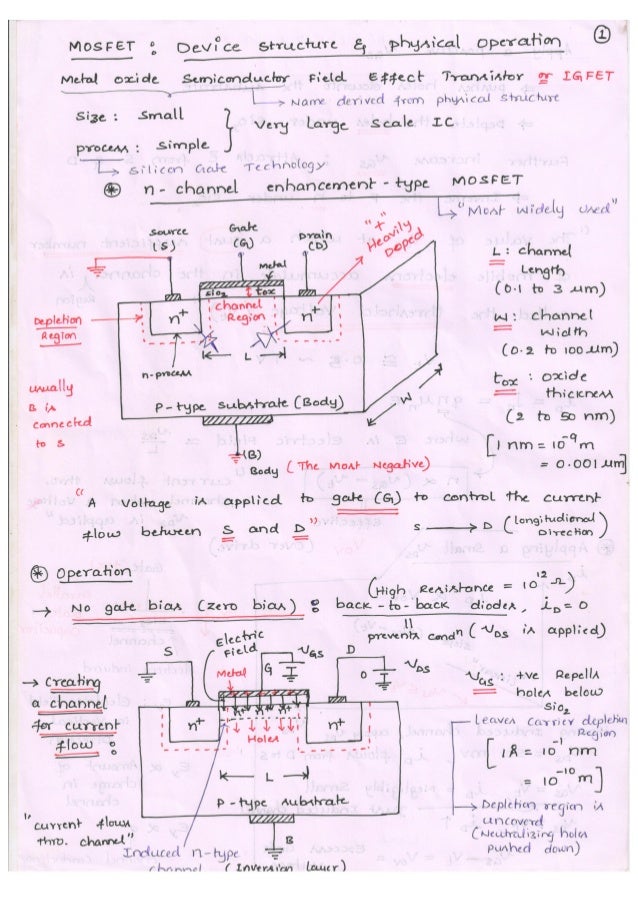 ①
MOSFET : Device structure & physical operation
Metal oxide Semiconductor Field Effect Transistor or IGFET
→ Name derived from physical structure
Size : small
process : simple
} very large scale IC
→ silicon Gate Technology
⊛ n-channel enhancement-type MOSFET
→ "Most widely used"
source (S)
Gate (G)
Drain (D)
"+" Heavily Doped
metal
sio2
tox
channel Region
Depletion Region
n+
n+
n-process
L
W
P-type substrate (Body)
usually
B is
connected
to S
(B)
Body (The Most Negative)
L : channel
Length
(0.1 to 3 μm)
W : channel
width
(0.2 to 100 μm)
tox : oxide
thickness
(2 to 50 nm)
[1 nm = 10⁻⁹ m
= 0.001 μm]
"A voltage is applied to gate (G) to control the current
flow between S and D"
S → D (longitudional Direction)
⊛ Operation
(High Resistance = 10¹² Ω)
→ No gate bias (zero bias) : back-to-back diodes, iD = 0
prevents condn (VDS is applied)
→ Creating
a channel
for current
flow :
S
Electric Field
Metal
G
VGS
D
VDS
n+
n+
Holes
L
P-type substrate
B
Induced n-type
channel (Inversion Layer)
"current flows
thro. channel"
VGS : +ve Repells
holes below
SiO2
Leaves carrier depletion
Region
[1Å = 10⁻¹ nm
= 10⁻¹⁰ m]
→ Depletion region is
uncoverd
(Neutralizing holes
pushed down)